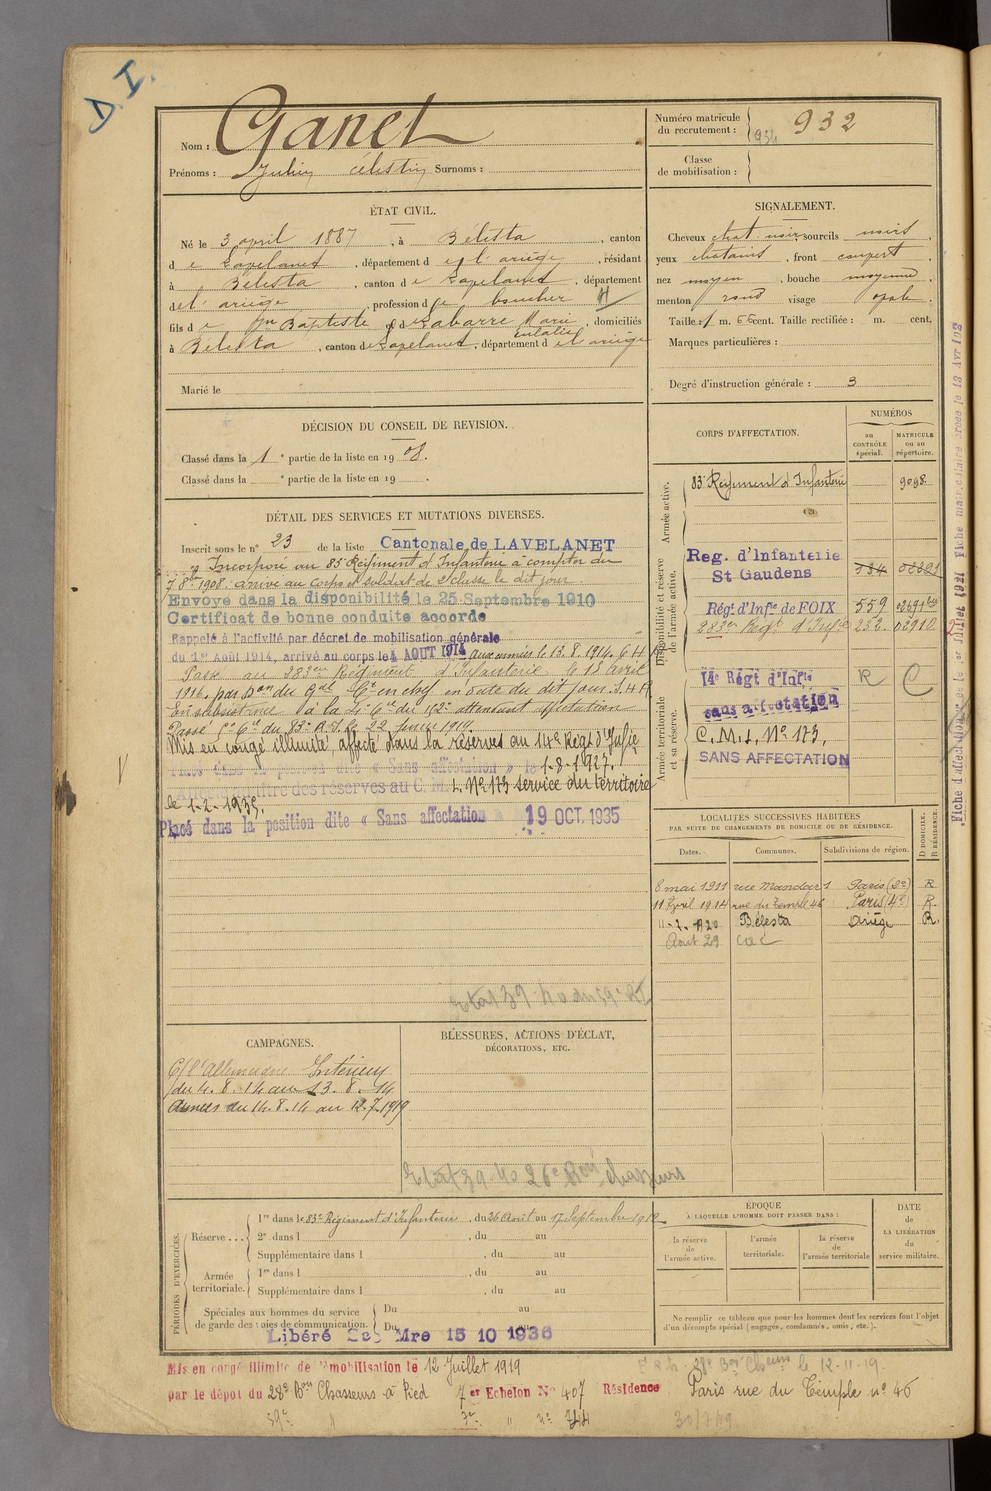 D.I.
Nom : Ganet
Prénoms : Julien Célestin Surnoms :
Numéro matricule
du recrutement : 932
934
Classe
de mobilisation :
ÉTAT CIVIL.
Né le 3 april 1887, à Bélesta, canton
de Lavelanet, département de l'ariège, résidant
à Bélesta, canton de Lavelanet, département
de l'ariège, profession de boucher
fils de Jn Baptiste et de Labarre Marie eulalie, domiciliés
à Bélesta, canton de Lavelanet, département de l'ariège
Marié le
SIGNALEMENT.
Cheveux chat. noir, sourcils noirs,
yeux chatains, front couvert,
nez moyen, bouche moyenne,
menton rond visage ovale.
Taille : 1 m. 66 cent. Taille rectifiée : m. cent.
Marques particulières :
Degré d'instruction générale : 3
DÉCISION DU CONSEIL DE REVISION.
Classé dans la 1e partie de la liste en 1908.
Classé dans la e partie de la liste en 19 .
DÉTAIL DES SERVICES ET MUTATIONS DIVERSES.
Inscrit sous le n° 23 de la liste Cantonale de LAVELANET
Incorporé au 83e Régiment d'Infanterie à compter du
7 8bre 1908. arrivé au corps et soldat de 2e classe le dit jour
Envoyé dans la disponibilité le 25 Septembre 1910
Certificat de bonne conduite accordé
Rappelé à l'activité par décret de mobilisation générale
du 1er Août 1914, arrivé au corps le 4 AOUT 1914 aux armées le 13.8.1914.
Passé au 283me Régiment d'Infanterie le 13 avril
1916. par Don du Gal Ct en chef en date du dit jour.
En subsistance à la 4e Cie du attendant affectation
Passé Cie du 83e R.I. le 22 1919.
Mis en congé illimité, affecté dans la réserves au 14e Régt d'Infie
Placé dans la position dite « Sans affectation » le 1-8-1927.
Affecté au titre des réserves au C.M.I. N° 173 service du territoire
le 1-2-1935.
Placé dans la position dite « Sans affectation 19 OCT. 1935
CORPS D'AFFECTATION.
NUMÉROS
au
CONTRÔLE
spécial.
MATRICULE
ou au
répertoire.
Armée active.
83e Régiment d'Infanterie 9098.
Disponibilité et réserve
de l'armée active.
Reg. d'Infanterie
St Gaudens
Régt d'Infie de FOIX 559
283e Régt d'Infie 232 02910
Armée territoriale
et sa réserve.
14e Régt d'Infie R C
sans affectation
C.M.I. N° 173,
SANS AFFECTATION
LOCALITÉS SUCCESSIVES HABITÉES
PAR SUITE DE CHANGEMENTS DE DOMICILE OU DE RÉSIDENCE.
Dates. Communes. Subdivisions de région. D DOMICILE. R RÉSIDENCE.
8 mai 1911 rue Mandar 1 Paris (2e) R
11 April 1914 rue du Temple 46 Paris (4e) R.
11-2-1920 Bélesta Ariège R.
Août 29
CAMPAGNES.
C/ l'Allemagne Intérieur
du 4.8.14 au 13.8.14
Armées du 14.8.14 au 12.7.1919
BLESSURES, ACTIONS D'ÉCLAT,
DÉCORATIONS, ETC.
PÉRIODES D'EXERCICES.
Réserve ...
1re dans le 83e Régiment d'Infanterie, du 26 Août au 17 Septembre 1912
2e dans l , du au
Supplémentaire dans l , du au
Armée
territoriale.
1re dans l , du au
Supplémentaire dans l , du au
Spéciales aux hommes du service
de garde des voies de communication.
Du au
Du au
Libéré Mre 15 10 1936
ÉPOQUE
À LAQUELLE L'HOMME DOIT PASSER DANS :
la réserve
de
l'armée active.
l'armée
territoriale.
la réserve
de
l'armée territoriale
DATE
de
LA LIBÉRATION
du
service militaire.
Ne remplir ce tableau que pour les hommes dont les services font l'objet
d'un décompte spécial (engagés, condamnés, omis, etc.).
Mis en congé illimité de démobilisation le 12 Juillet 1919
par le dépot du 28e Bon Chasseurs à Pied 7er Echelon N° 407 Résidence Paris rue du Temple n° 46
28e Bon Cheurs le 12-11-19.